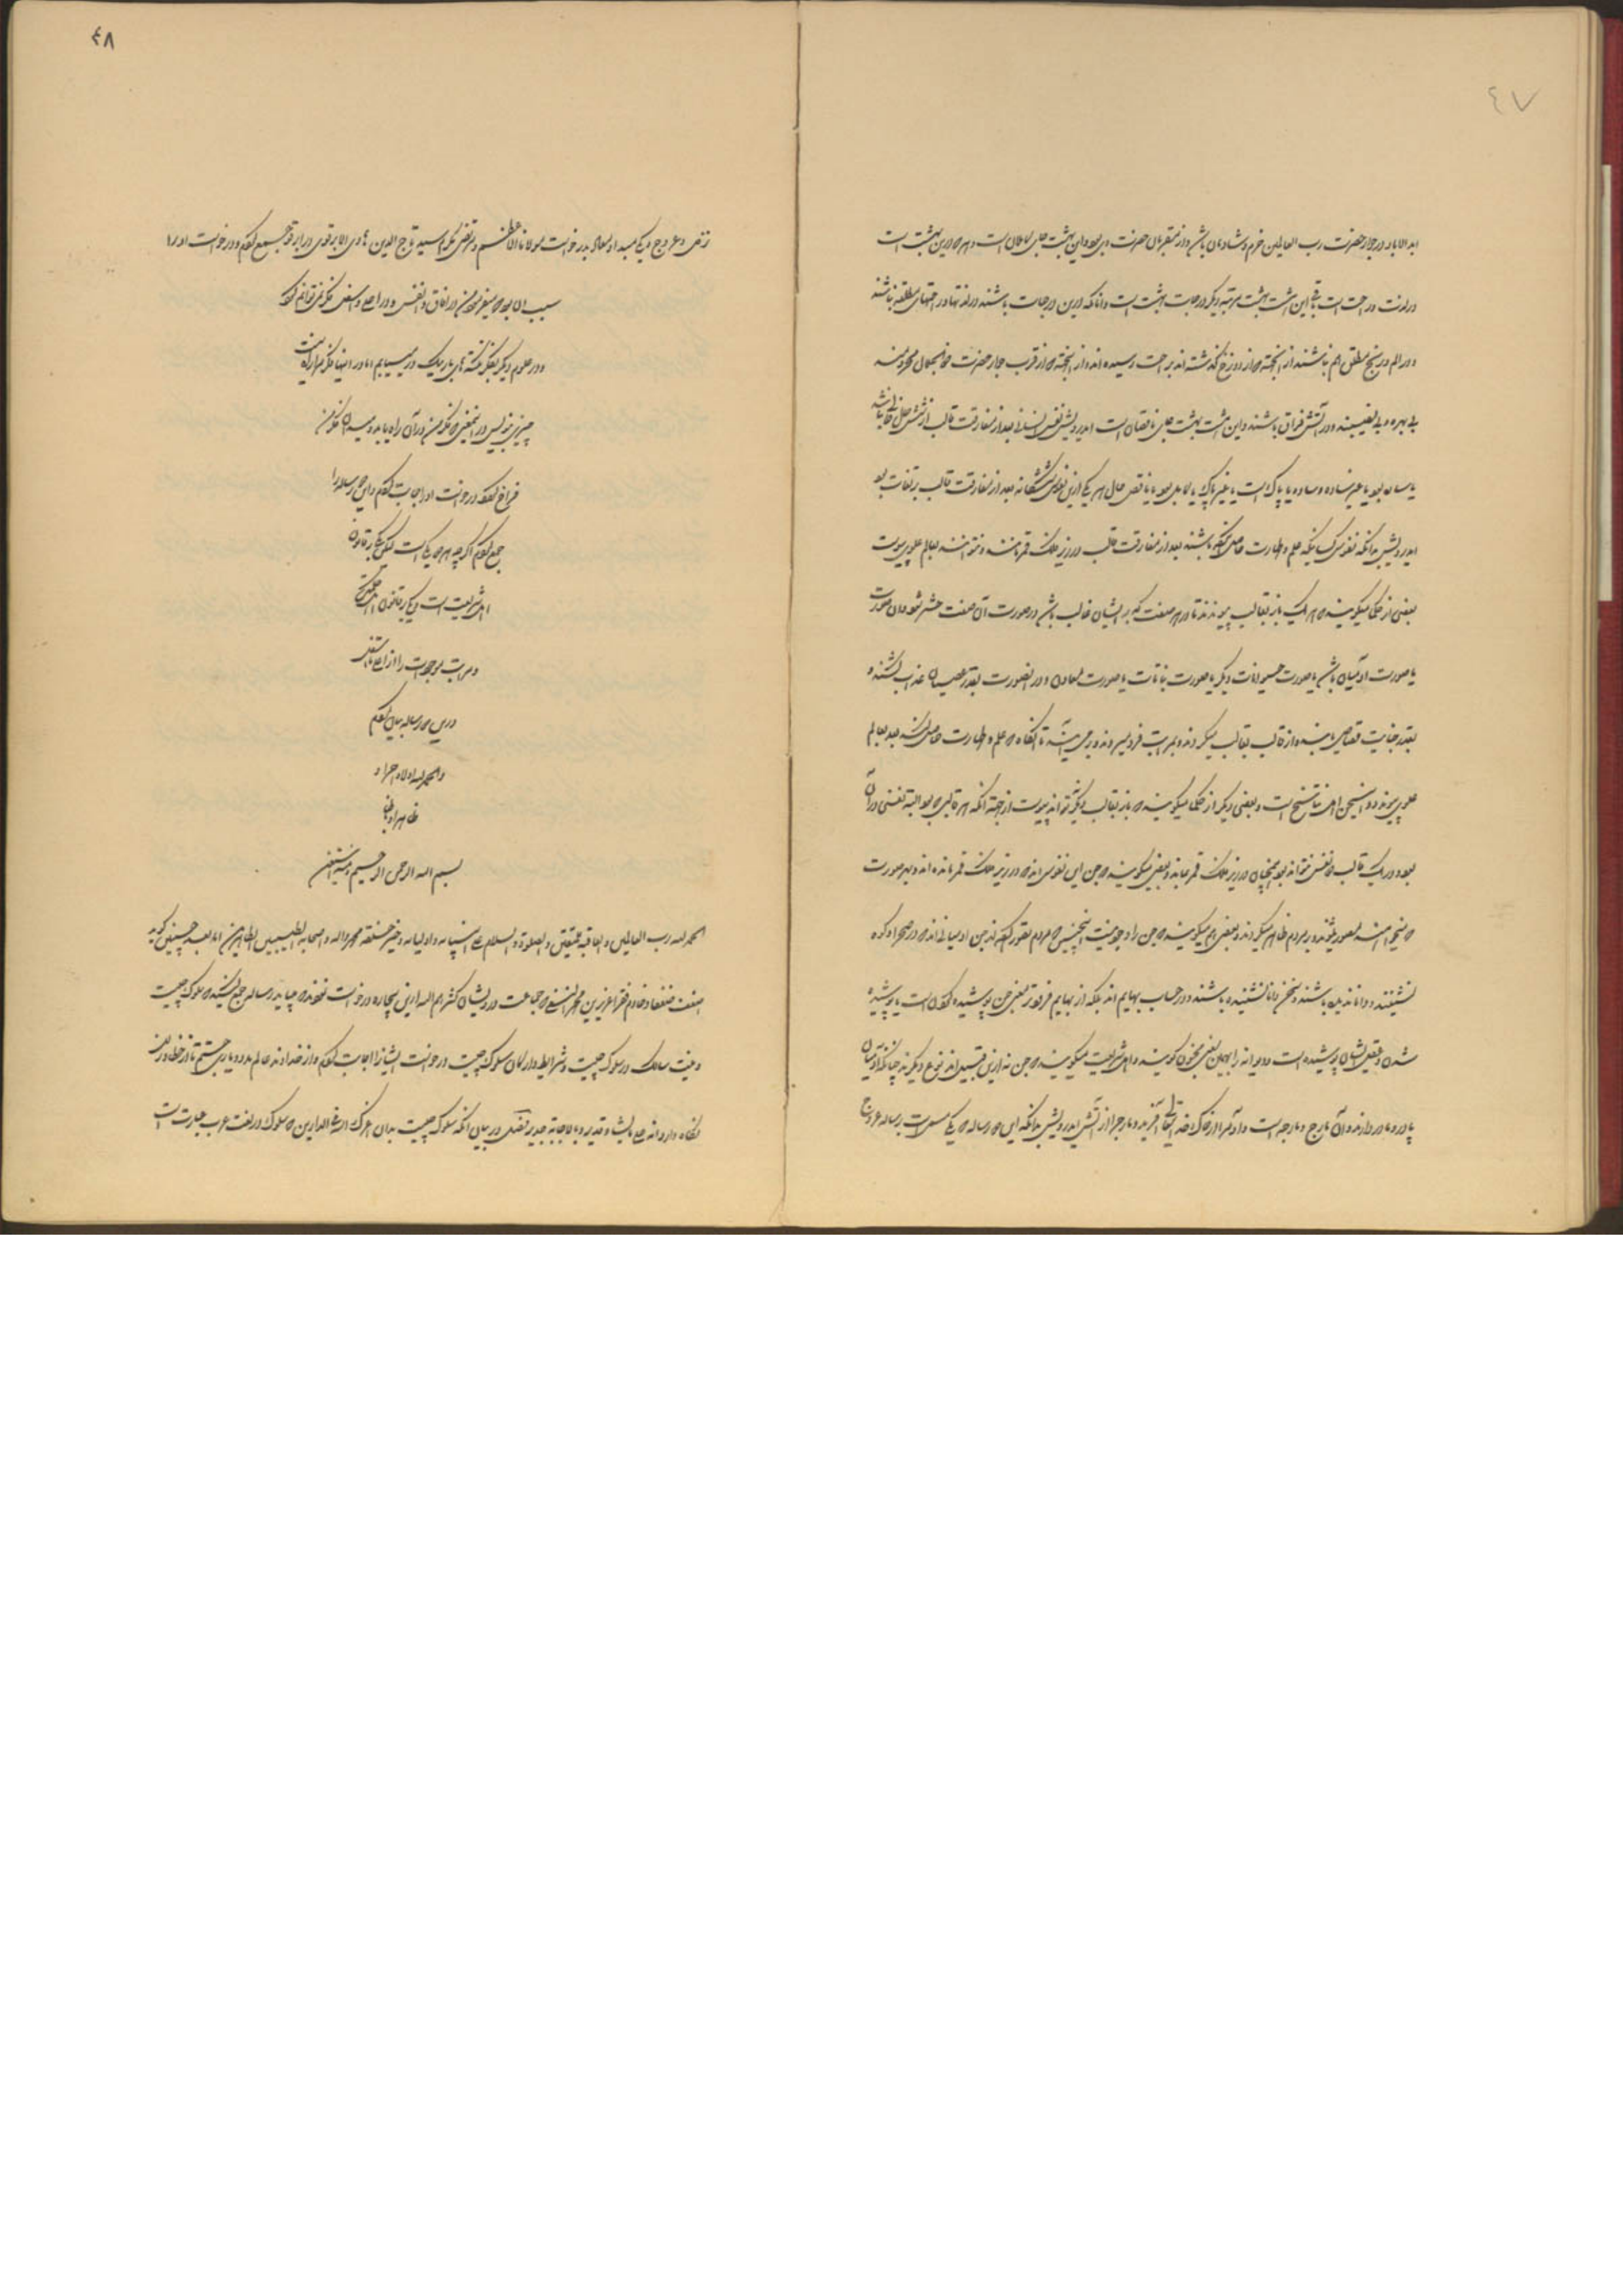 ٤٧
ابد الاباد در جوار حضرت رب العالمین خرم و شادمان باشد و از مقربان حضرت وی بود و این بهشت جای کاملان است و هر که درین بهشت است
در لذت و راحت است باقی این هشت بهشت مرتبه دیگر درجات بهشت است و آنها که درین درجات باشند در لذتها و راحتهای مطلق نباشند
و در الم و رنج مطلق هم نباشند از آنجهت که از دوزخ گذشته اند براحت رسیده اند و از آنجهت که از قرب جوار حضرت ذوالجلال محرومند
بی بهره و بی نصیبند و در آتش فراق باشند و این هشت بهشت جای ناقصان است ای درویش نفس انسان بعد از مفارقت قالب از شش حال خالی نباشد
یا ساده بود یا غیر ساده و ساده یا پاک است یا غیر پاک یا کامل بود یا ناقص حال هر یکی ازین نفوس ششگانه بعد از مفارقت قالب بتفاوت بود
ای درویش بدانکه نفوس کسانیکه علم و طهارت حاصل نکرده باشند بعد از مفارقت قالب در زیر فلک قمر بمانند و نتوانند بعالم علوی پیوست
بعضی از حکما میگویند که هر یک باز بقالب پیوندند تا در هر صفت که بر ایشان غالب باشد در صورت آن صفت حشر شود و آن صورت
یا صورت آدمیان باشد یا صورت حیوانات دیگر یا صورت نباتات یا صورت معادن و در آن صورت بقدر معصیت عذاب کشند و
بقدر جنایت قصاص یابند و از قالب بقالب میگردند و بمراتب فرو میروند و برمی آیند تا آنگاه که علم و طهارت حاصل کنند بعد بعالم
علوی پیوندند و این سخن اهل تناسخ است و بعضی دیگر از حکما میگویند که باز بقالب دیگر نتواند پیوست از جهت آنکه هر قالبی که بود البته نفسی در آن
بود و در یک قالب دو نفس نتواند بود همچنان در زیر فلک قمر بماند و بعضی میگویند که جن این نفوس اند که در زیر فلک قمر مانده اند و بهر صورت
که میخواهند مصور میشوند و بر مردم ظاهر میگردند و بعضی هم میگویند که جن را وجود نیست اینچنین که مردم تصور کرده اند جن آدمیانند که در صحرا و کوه
نشینند و دانا ندیده باشند و سخن دانا نشنیده باشند و در حساب بهایم اند بلکه از بهایم فروتر معنی جن پوشیده کردن است یا پوشیده
شدن و عقل ایشان پوشیده است و دیوانه را بهمین معنی مجنون گویند و اهل شریعت میگویند که جن نه ازین قبیل اند نوع دیگرند چنانکه آدمیان
پدر و مادر دارند و آن مارج و مارجه است و آدم را از خاک خدایتعالی آفرید و مارج را از آتش ای درویش بدانکه این دو رساله که یکی مسمی است برساله عروج
٤٨
و عروج و یکی مبدا و معاد بدرخواست مولانا الاعظم مرتضی مکرم سید تاج الدین هادی الابرقوی در ابرقو جمع کردم و درخواست او را
سبب آن بود که میفرمود من در آفاق و انفس و در اعلی و اسفل فکر نمیتوانم کرد
و در علوم دیگر بفکر نکته های باریک درمییابم اما در اینها فکر مرا راه نیست
چیزی بنویس در اینمعنی که فکر من در آن راه یابد و میدان فکر من
فراخ گردد درخواست او اجابت کردم و این دو رساله را
جمع کردم اگرچه هر دو یکی است لیکن یکی بر قانون
اهل شریعت است و یکی بر قانون اهل حکمت
و مراتب موجودات را از اعلی تا اسفل
درین دو رساله بیان کردم
والحمد لله اولا و آخرا و
ظاهرا و باطنا
بسم الله الرحمن الرحیم و به نستعین
الحمد لله رب العالمین و العاقبة للمتقین و الصلوة و السلام علی انبیائه و اولیائه و خیر خلقه محمد و اله و اصحابه الطیبین الطاهرین اما بعد چنین گوید
اضعف ضعفا و خادم فقرا عزیز بن محمد النسفی که جماعت درویشان کثرهم الله ازین بیچاره درخواست کردند که میباید رساله جمع کنید که سلوک چیست
و نیت سالک در سلوک چیست و شرایط و ارکان سلوک چیست درخواست ایشانرا اجابت کردم و از خداوند عالم مدد و یاری جستم تا از خطا و زلل
نگاه دارد انه علی ما یشاء قدیر و بالاجابة جدیر فصل در بیان آنکه سلوک چیست بدان اعزک الله فی الدارین که سلوک در لغت عرب عبارت است